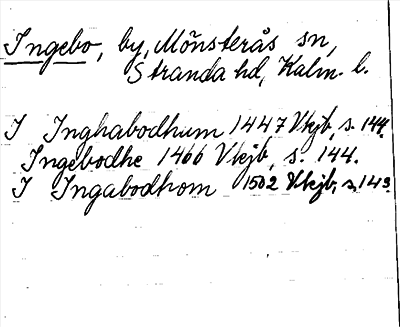 Ingebo, by, Mönsterås sn,
Stranda hd, Kalm. l.
I Inghabodhum 1447 Vkjb, s. 144.
Ingebodhe 1466 Vkjb, s. 144.
I Ingabodhom 1502 Vkjb, s. 143